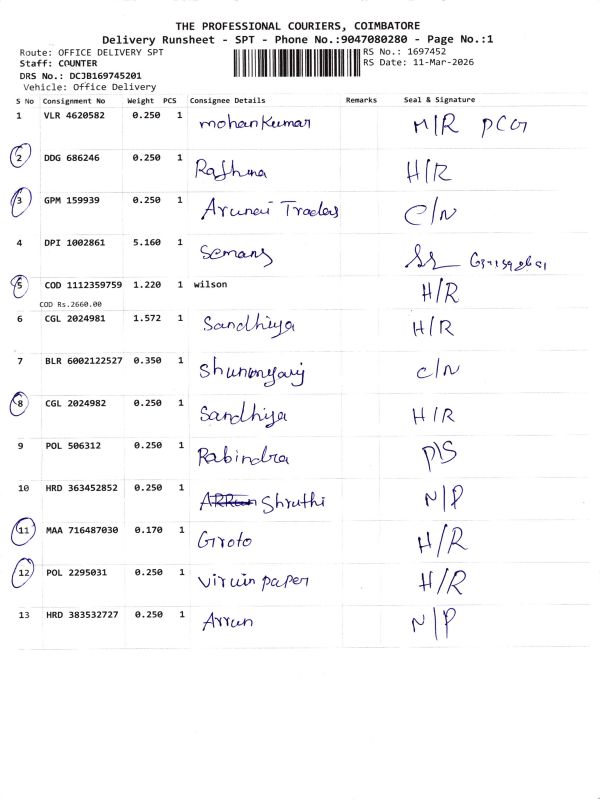 THE PROFESSIONAL COURIERS, COIMBATORE
Delivery Runsheet - SPT - Phone No.:9047080280 - Page No.:1
Route: OFFICE DELIVERY SPT RS No.: 1697452
Staff: COUNTER RS Date: 11-Mar-2026
DRS No.: DCJB169745201
Vehicle: Office Delivery
S No Consignment No Weight PCS Consignee Details Remarks Seal & Signature
1 VLR 4620582 0.250 1 mohankumar M/R
2 DDG 686246 0.250 1 H/R
3 GPM 159939 0.250 1 Traders C/N
4 DPI 1002861 5.160 1
5 COD 1112359759 1.220 1 wilson H/R
COD Rs.2660.00
6 CGL 2024981 1.572 1 Sandhiya H/R
7 BLR 6002122527 0.350 1 C/N
8 CGL 2024982 0.250 1 Sandhiya H/R
9 POL 506312 0.250 1 Rabindra
10 HRD 363452852 0.250 1 Shruthi N/P
11 MAA 716487030 0.170 1 H/R
12 POL 2295031 0.250 1 paper H/R
13 HRD 383532727 0.250 1 Arrun N/P